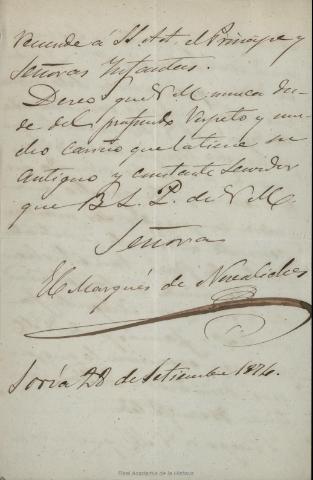 recuerde á S. A. el Principe y
Señoras Infantas.
Deseo que V. M. nunca du-
de del profundo respeto y mu-
cho cariño que la tiene su
antiguo y constante servidor
que B. L. P. de V. M.
Señora
El Marqués de Novaliches
Soria 28 de Setiembre 1874.
Real Academia de la Historia